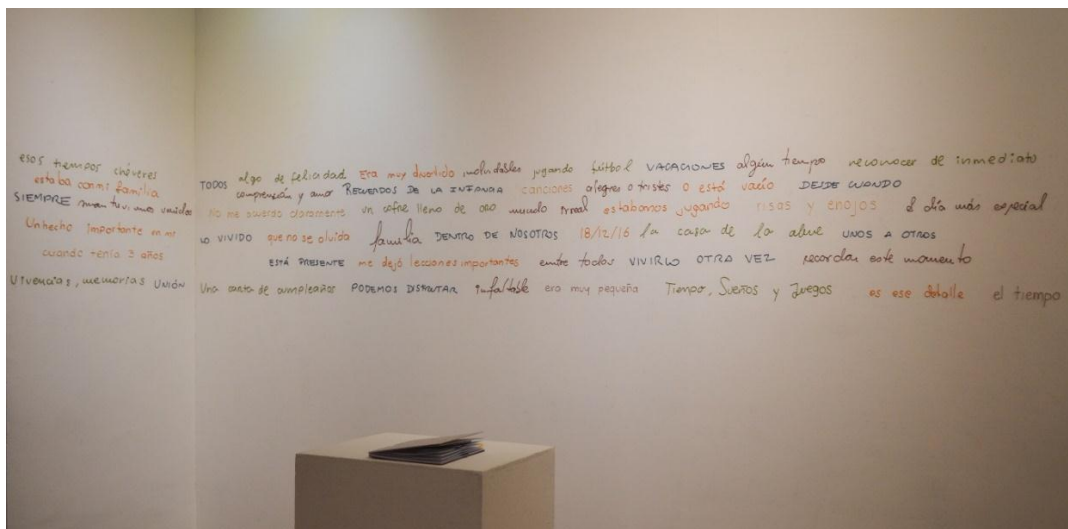 esos tiempos chéveres
estaba con mi familia
SIEMPRE mantuvimos unidos
Un hecho importante en mi
cuando tenía 3 años
Vivencias, memorias UNIÓN
TODOS algo de felicidad Era muy divertido inolvidables jugando fútbol VACACIONES algún tiempo reconocer de inmediato
comprensión y amor RECUERDOS DE LA INFANCIA canciones alegres o tristes o está vacío DESDE CUANDO
No me acuerdo claramente un cofre lleno de oro mundo irreal estábamos jugando risas y enojos el día más especial
LO VIVIDO que no se olvida familia DENTRO DE NOSOTROS 18/12/16 la casa de la UNOS A OTROS
ESTÁ PRESENTE me dejó lecciones importantes entre todos VIVIRLO OTRA VEZ recordar este momento
Una carta de cumpleaños PODEMOS DISFRUTAR infaltable era muy pequeña Tiempo, Sueños y Juegos es ese detalle el tiempo